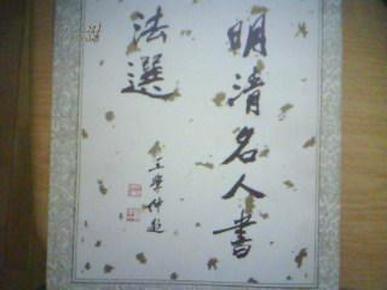 明清名人書
法選
王學仲題